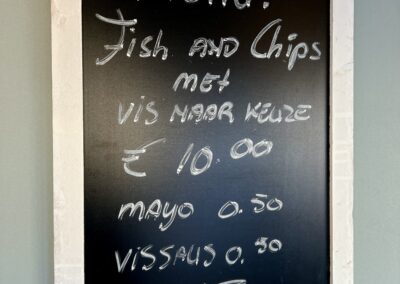 Fish AND Chips
MET
VIS NAAR KEUZE
€ 10.00
MAYO 0.50
VISSAUS 0.50